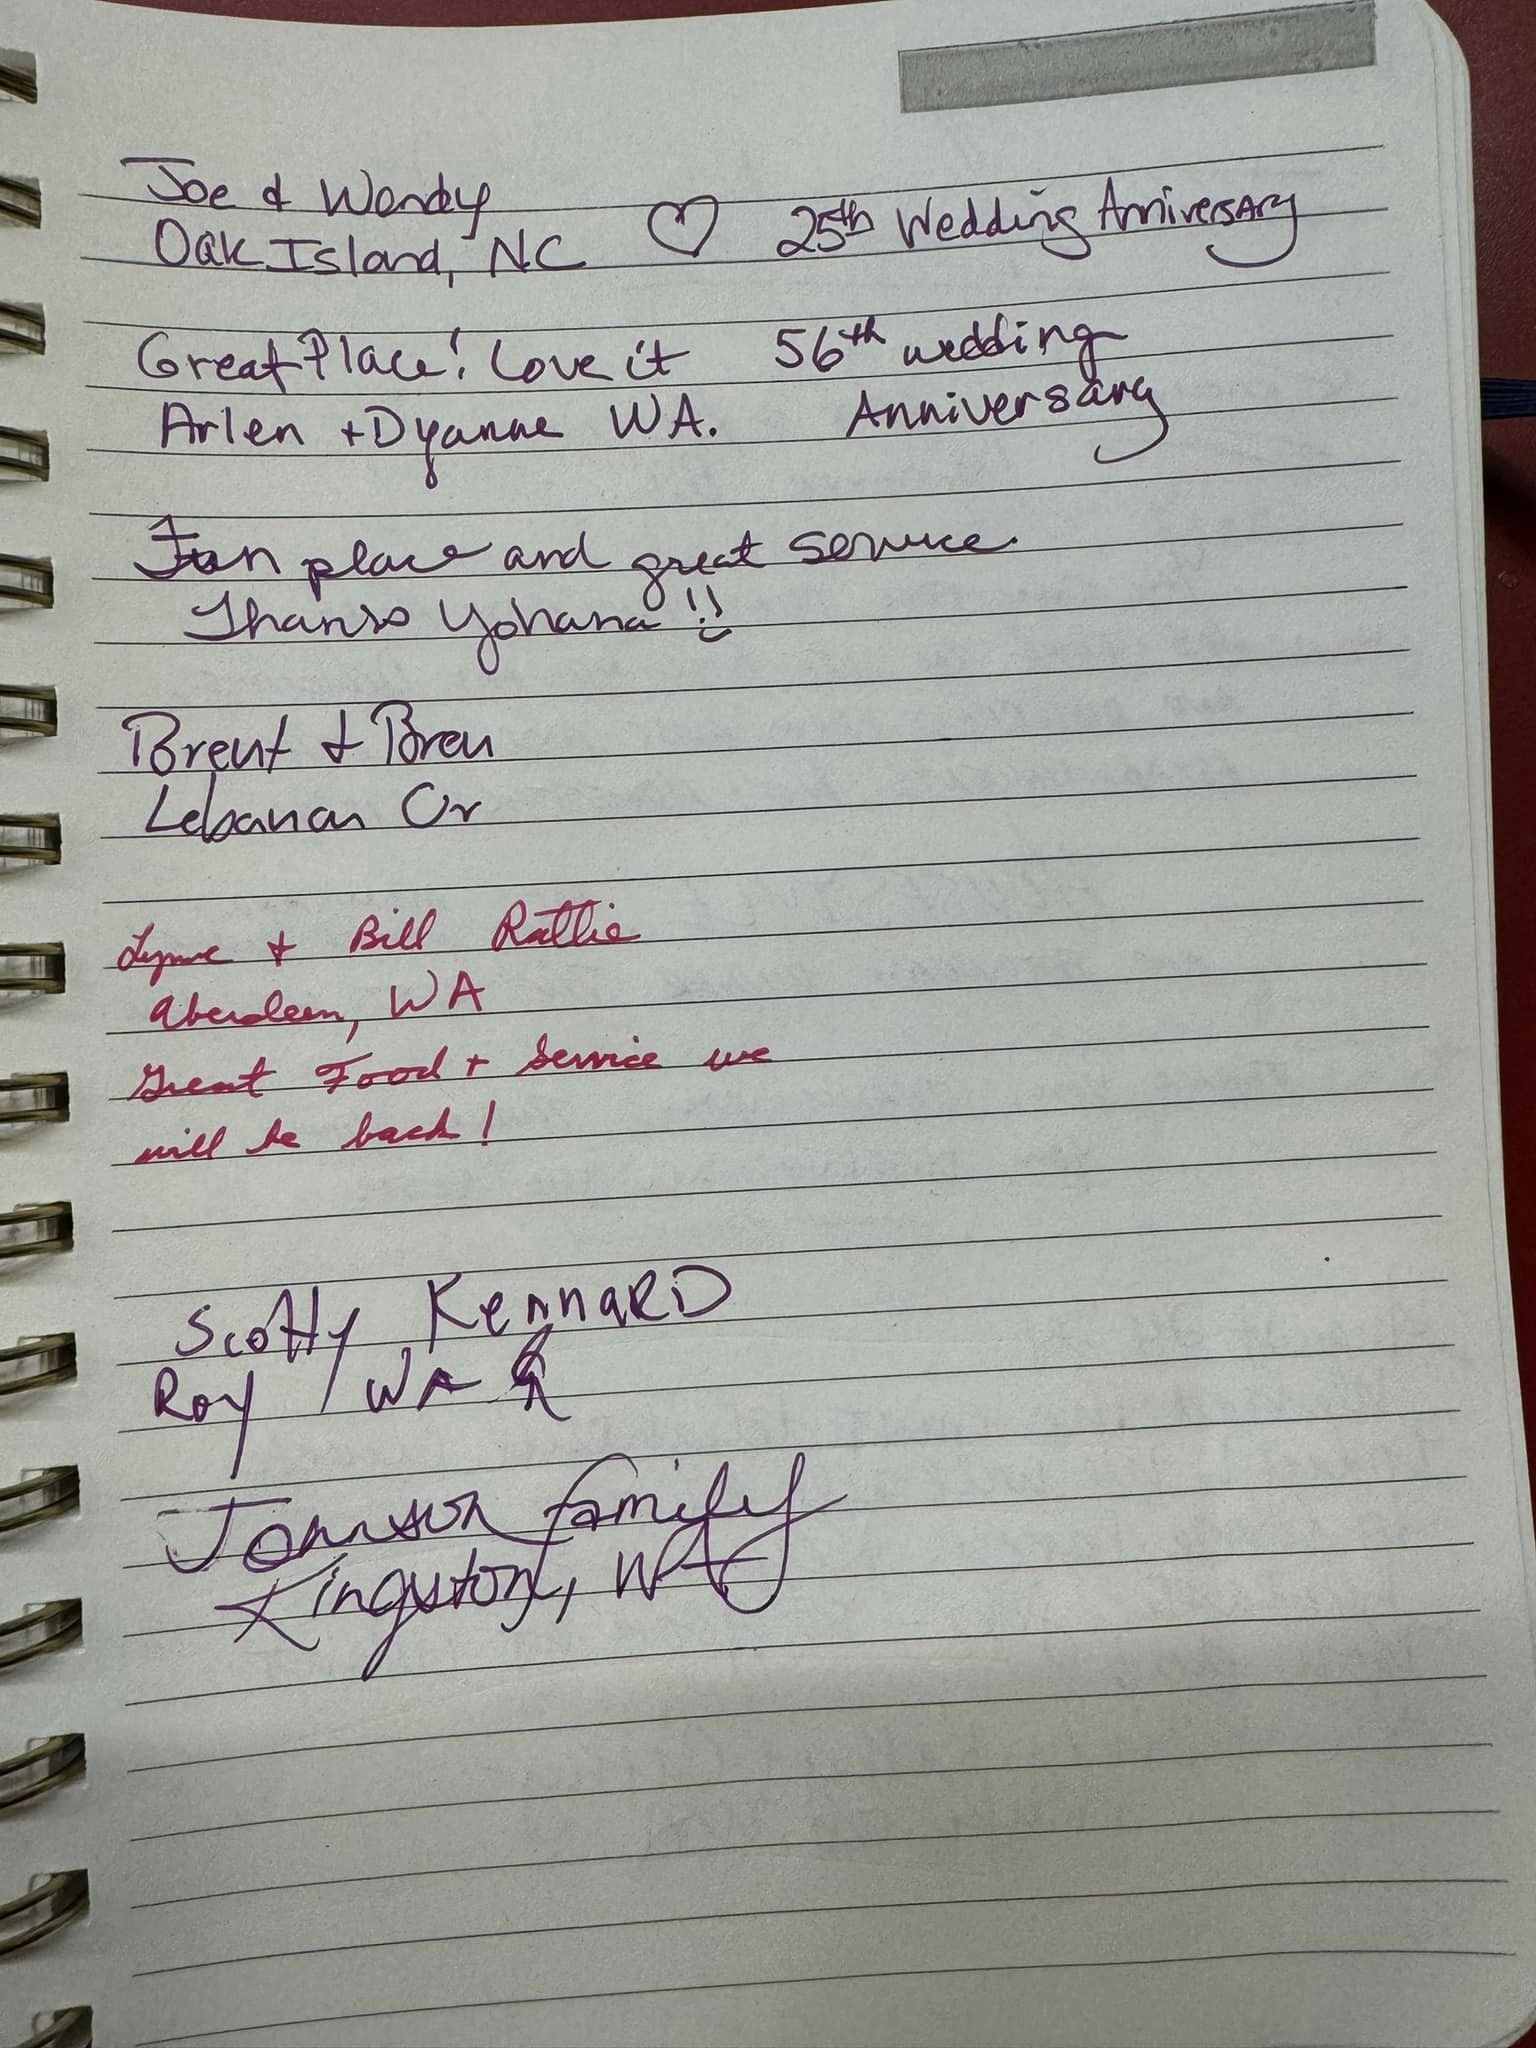 Joe & Wendy
Oak Island, NC ♡ 25th Wedding Anniversary
Great Place! Love it 56th wedding
Arlen + Dyanne WA. Anniversary
Fun place and great service.
Thanks Yohana!!
Brent & Bren
Lebanon Or
Lynne + Bill Rattie
Aberdeen, WA
Great Food + Service we
will be back!
Scotty Kennard
Roy, WA
Johnson family
Kingston, WA